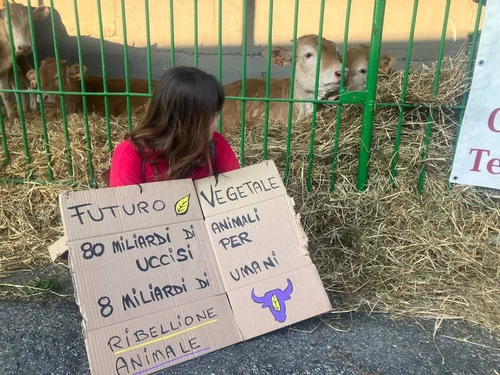 FUTURO VEGETALE
80 MILIARDI DI ANIMALI
UCCISI PER
8 MILIARDI DI UMANI
RIBELLIONE
ANIMALE
C
Te